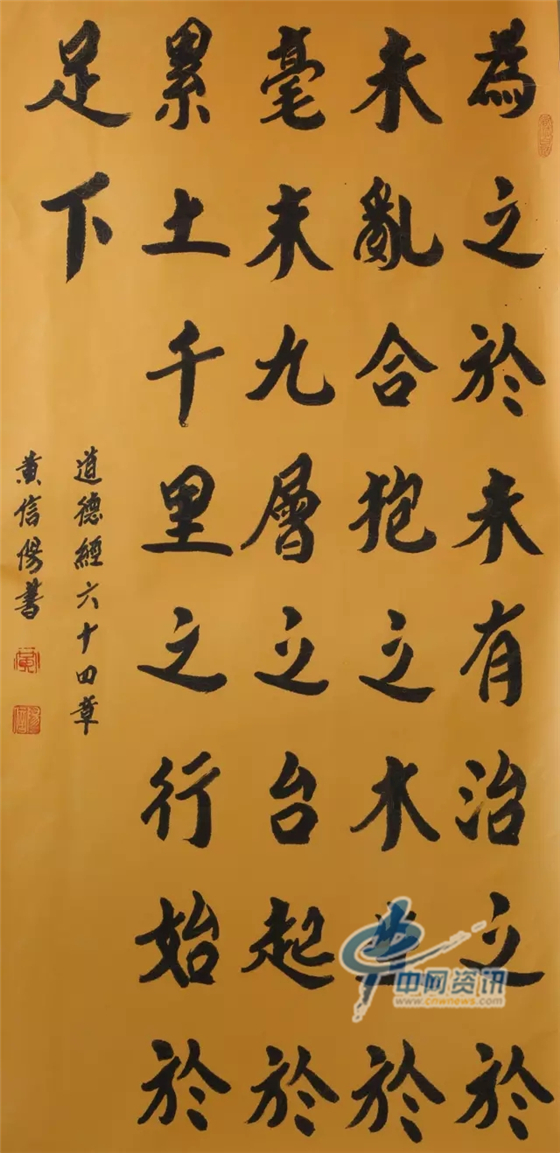 為之於未有治之於
未亂合抱之木生於
毫末九層之台起於
累土千里之行始於
足下
道德經六十四章
黄信陽書
中网资讯
www.cnwnews.com